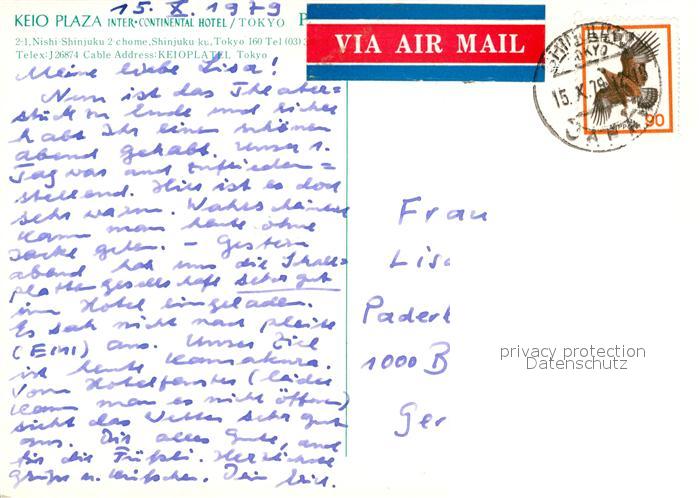 15. X. 1979
KEIO PLAZA INTER·CONTINENTAL HOTEL / TOKYO P
2-1, Nishi-Shinjuku 2-chome, Shinjuku-ku, Tokyo 160 Tel (03) 3
Telex: J26874 Cable Address: KEIOPLATEL Tokyo
VIA AIR MAIL
TOKYO
15. X. 79
JAPAN
NIPPON
90
Meine liebe Lisa!
Nun ist das Theater=
stück zu Ende und sicher
habt Ihr einen schönen
abend gehabt. Unser 1.
Tag war auch zufrieden=
stellend. Hier ist es doch
sehr warm. Wahrscheinlich
kann man heute ohne
Jacke gehen. – Gestern
abend hat uns die Schall=
plattengesellschaft sehr gut
im Hotel eingeladen.
Es sah nicht nach pleite
(EMI) aus. Unser Ziel
ist heute Kamakura.
Vom Hotelfenster (leider
kann man es nicht öffnen)
sieht das Wetter sehr gut
aus. Dir alles Gute, auch
für die Füßli. Herzliche
Grüße u. Küßchen. Dein
Frau
Lisa
Paderb
1000 B
Ger
privacy protection
Datenschutz